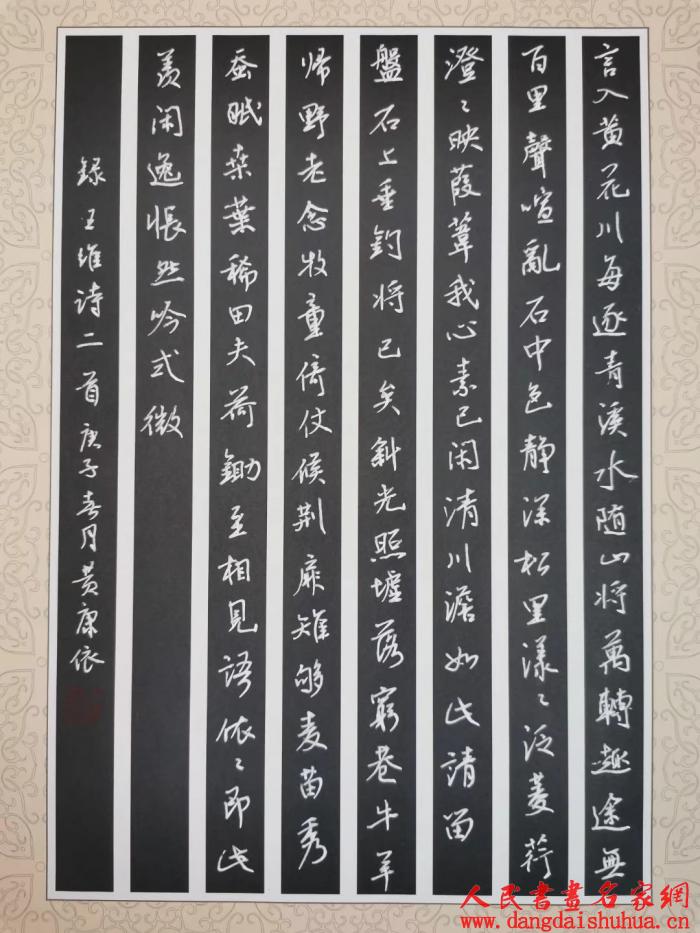 言入黄花川每逐青溪水随山将萬轉趣途無
百里聲喧亂石中色静深松里漾〻泛菱荇
澄〻映葭葦我心素已闲清川澹如此请留
盤石上垂钓将已矣斜光照墟落窮巷牛羊
归野老念牧童倚仗候荆扉雉够麦苗秀
蚕眠桑葉稀田夫荷鋤至相見语依〻即此
羡闲逸怅然吟式微
録王维诗二首庚子春月黄康依
人民書畫名家網
www.dangdaishuhua.cn